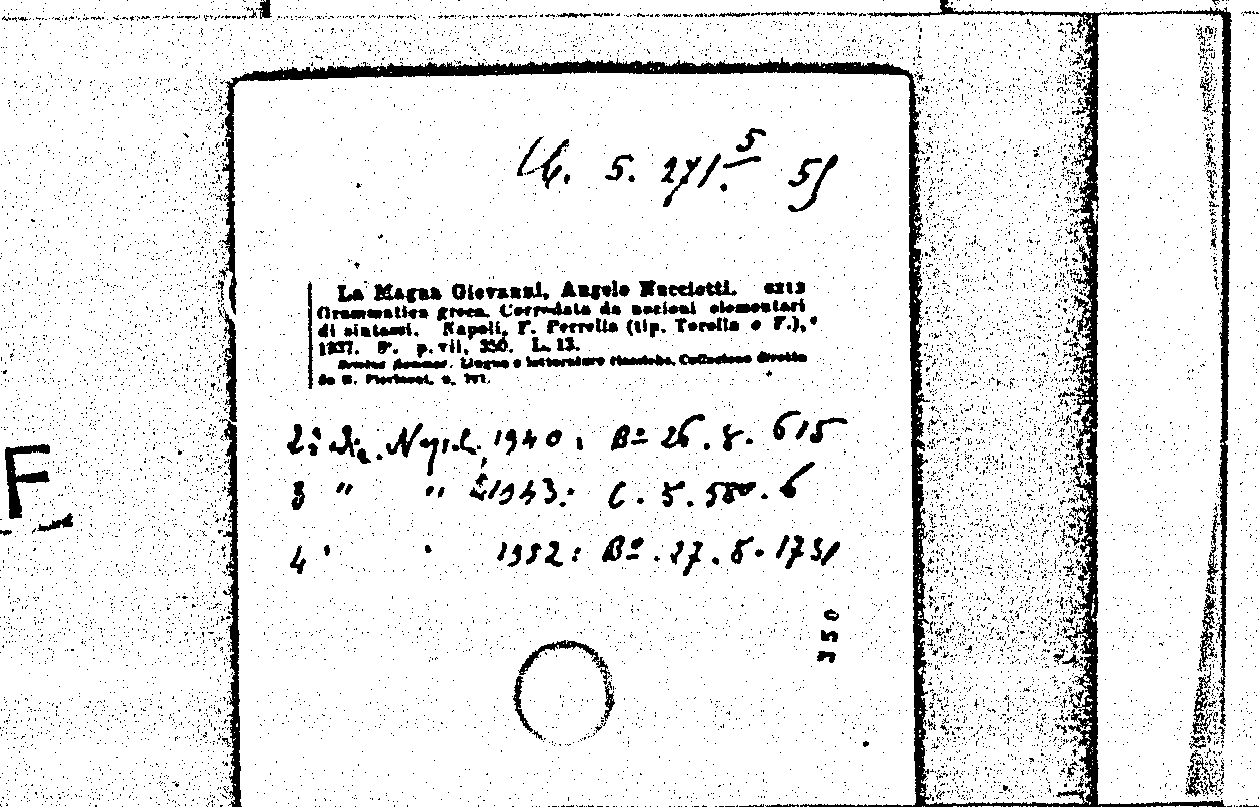 5. 271. 5
La Magna Giovanni, Angelo Nucciotti. 6213
Grammatica greca. Corredata da nozioni elementari
di sintassi. Napoli, F. Perrella (tip. Torella e F.),
1937. 8°. p. vii, 350. L. 13.
Lingue e letterature classiche. Collezione diretta
da
2ª Napoli, 1940: Bº 26. 8. 615
3 " " 1943: C. 5. 580. 6
4 ' ' 1952: Bº. 27. 8. 173
350
F